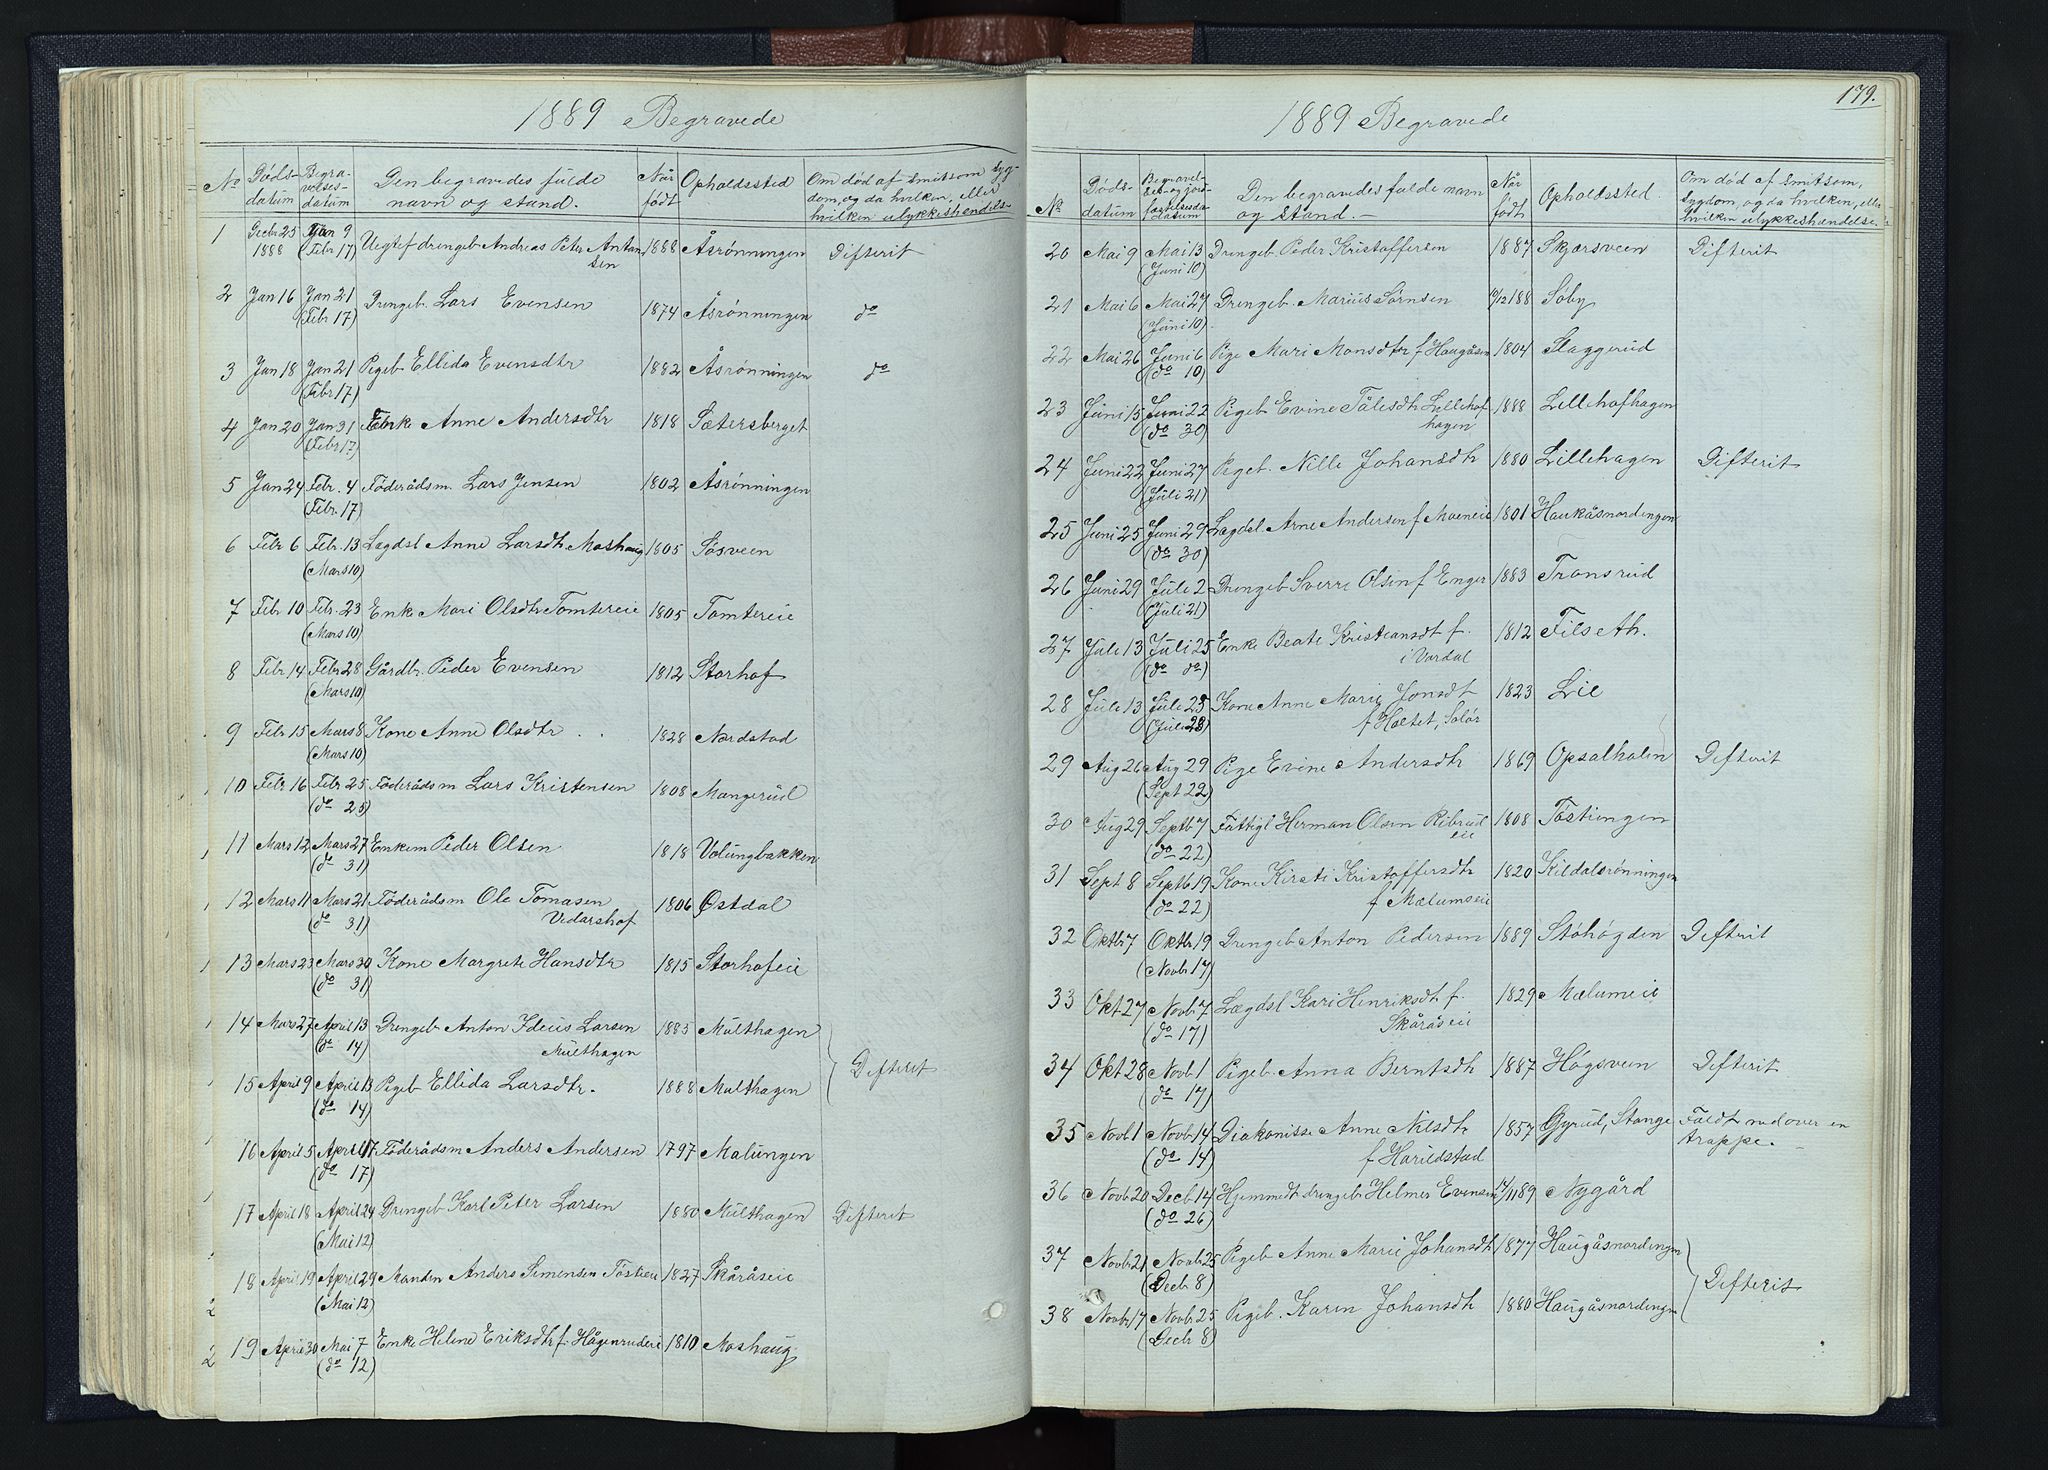 1889 Begravede
No Dödsdatum Begravelsesdatum Den begravedes fulde navn og stand. Når født Opholdssted Om död af smitsom sygdom, og da hvilken, eller hvilken ulykkeshendelse
1 Decbr 25 1888 Jan 9 (Febr 17) Uegtef drengeb Andreas Peter Antansen 1888 Åsrønningen Difterit
2 Jan 16 Jan 21 (Febr 17) Drengeb. Lars Evensen 1874 Åsrønningen do
3 Jan 18 Jan 21 (Febr 17) Pigeb Ellida Evensdtr 1882 Åsrønningen do
4 Jan 20 Jan 31 (Febr 17) Enke Anne Andersdtr 1818 Sætersberget
5 Jan 24 Febr. 4 (Febr. 17) Föderådsm. Lars Jensen 1802 Åsrønningen
6 Febr 6 Febr. 13 (Mars 10) Lægdsl Anne Larsdtr Moshaug 1805 Sösveen
7 Febr 10 Febr. 23 (Mars 10) Enke Mari Olsdtr Tomtereie 1805 Tomtereie
8 Febr 14 Febr 28 (Mars 10) Gårdbr. Peder Evensen 1812 Storhof
9 Febr 15 Mars 8 (Mars 10) Kone Anne Olsdtr 1828 Nordstad
10 Febr 16 Febr 25 (do 25) Föderådsm Lars Kristensen 1808 Mangerud
11 Mars 12 Mars 27 (do 31) Enkem Peder Olsen 1818 Volungbakken
12 Mars 11 Mars 21 (do 31) Föderådsm Ole Tomasen Vidarshof 1806 Østdal
13 Mars 23 Mars 30 (do 31) Kone Margrete Hansdtr 1815 Storhofeie
14 Mars 27 April 13 (do 14) Drengeb Anton Ideus Larsen Multhagen 1885 Multhagen Difterit
15 April 9 April 13 (do 14) Pigeb Ellida Larsdtr. 1888 Multhagen
16 April 5 April 17 (do 17) Föderådsm Anders Andersen 1797 Malungen
17 April 18 April 24 (Mai 12) Drengeb Karl Peter Larsen 1880 Multhagen Difterit
18 April 19 April 29 (Mai 12) Manden Anders Simensen Töstieie 1827 Skåråseie
19 April 30 Mai 7 (do 12) Enke Helene Eriksdtr f. Hågenrudeie 1810 Noshaug.
179.
1889 Begravede
No Dödsdatum Begravelses og jordfæstelsesdatum Den begravedes fulde navn og stand. Når født Opholdssted. Om död af smitsom sygdom, og da hvilken, eller hvilken ulykkeshendelse.
20 Mai 9 Mai 13 (Juni 10) Drengeb. Peder Kristoffersen 1887 Skjærsveen Difterit
21 Mai 6 Mai 27 (Juni 10) Drengeb. Marius Sörnsen 10/12 188 Söby
22 Mai 26 Juni 6 (do 10) Pige Mari Monsdtr f Haugåsen 1804 Slaggerud
23 Juni 15 Juni 22 (do 30) Pigeb Evine Tålesdtr Lillehofhagen 1888 Lillehofhagen
24 Juni 22 Juni 27 (Juli 21) Pigeb. Nille Johansdtr 1880 Lillehagen Difterit
25 Juni 25 Juni 29 (do 30) Lægdsl. Arne Andersen f Moeneie 1801 Haukåsnordengen
26 Juni 29 Juli 2 (Juli 21) Drengeb Sverre Olsen f Enger 1883 Transrud
27 Juli 13 Juli 25 (do do) Enke Beate Kristiansdt f. i Vardal 1812 Filseth.
28 Juli 13 Juli 25 (Juli 28) Kone Anne Marie Jonsdt f Holtet, Solör 1823 Lie
29 Aug 26 Aug 29 (Sept 22) Pige Evine Andersdtr 1869 Opsalhalen Difterit
30 Aug 29 Septb 7 (do 22) Fattigl Herman Olsen Ribrudeie 1808 Töstiengen
31 Sept 8 Septb 19 (do 22) Kone Kirsti Kristoffersdtr f Mælumseie 1820 Kildalsrønningen
32 Oktbr 7 Oktbr 19 (Novbr 17) Drengeb Anton Pedersen 1889 Stöhögden Difterit
33 Okt 27 Novb 7 (do 17) Lægdsl Kari Henriksdt f. Skåråseie 1829 Mælumeie
34 Okt 28 Novb 1 (do 17) Pigeb Anna Berntsdtr 1887 Högsveen Difterit
35 Novb 1 Novb 14 (do 14) Diakonisse Anne Nilsdtr f Harildstad 1857 Gyrud, Stange Faldt nedover en trappe.
36 Novb 20 Decb 14 (do 26) Hjemmedt drengeb Helmer Evensen 17/11 89 Nygård
37 Novbr 21 Novbr 25 (Decb 8) Pigeb Anne Marie Johansdtr 1877 Haugåsnordengen Difterit
38 Novbr 17 Novbr 25 (Decbr 8) Pigeb. Karen Johansdtr 1880 Haugåsnordengen